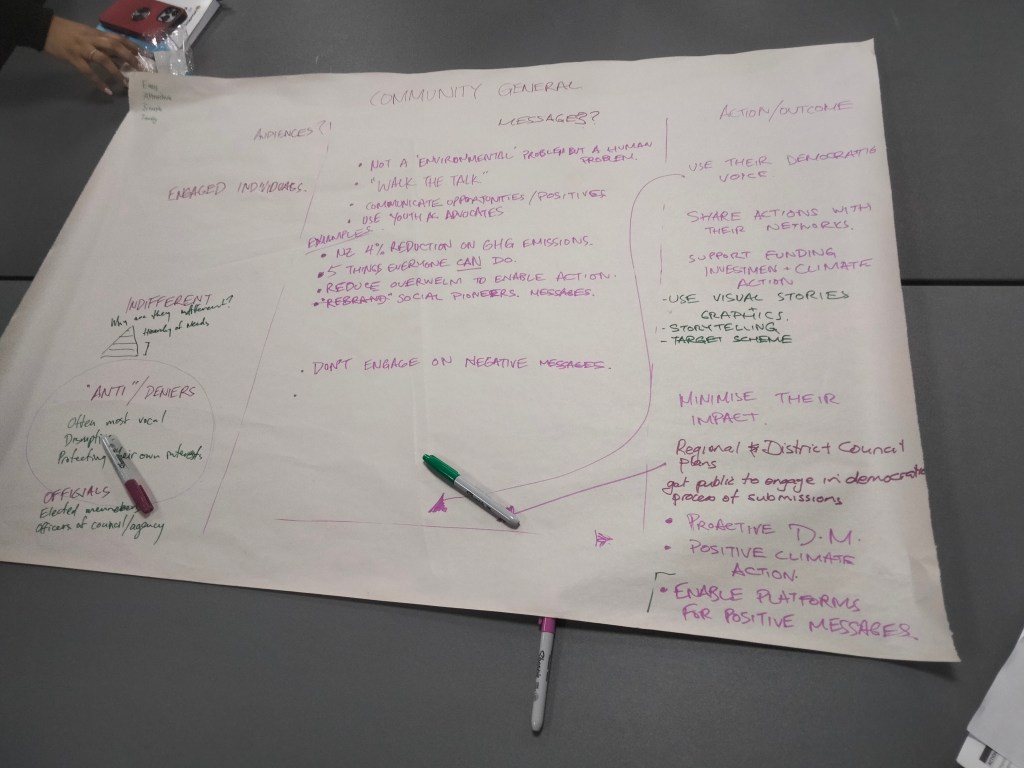 COMMUNITY GENERAL
AUDIENCES?!
ENGAGED INDIVIDUALS.
INDIFFERENT
Why are they indifferent?
Hierarchy of Needs
"ANTI"/DENIERS
Often most vocal
Protecting their own interests
OFFICIALS
Elected members
Officers of council/agency
MESSAGES?
• NOT A 'ENVIRONMENTAL' PROBLEM BUT A HUMAN
PROBLEM.
• "WALK THE TALK"
• COMMUNICATE OPPORTUNITIES/POSITIVES
• USE YOUTH AS ADVOCATES
EXAMPLES
• NZ 4% REDUCTION ON GHG EMISSIONS.
• 5 THINGS EVERYONE CAN DO.
• REDUCE OVERWELM TO ENABLE ACTION.
• "REBRAND" SOCIAL PIONEERS. MESSAGES.
• DON'T ENGAGE ON NEGATIVE MESSAGES.
ACTION/OUTCOME
USE THEIR DEMOCRATIC
VOICE
SHARE ACTIONS WITH
THEIR NETWORKS.
SUPPORT FUNDING
INVESTMEN + CLIMATE
ACTION
- USE VISUAL STORIES
+
GRAPHICS.
- STORYTELLING
- TARGET SCHEME
MINIMISE THEIR
IMPACT.
Regional & District Council
plans
get public to engage in democratic
process of submissions
• PROACTIVE D.M.
• POSITIVE CLIMATE
ACTION.
• ENABLE PLATFORMS
FOR POSITIVE MESSAGES.